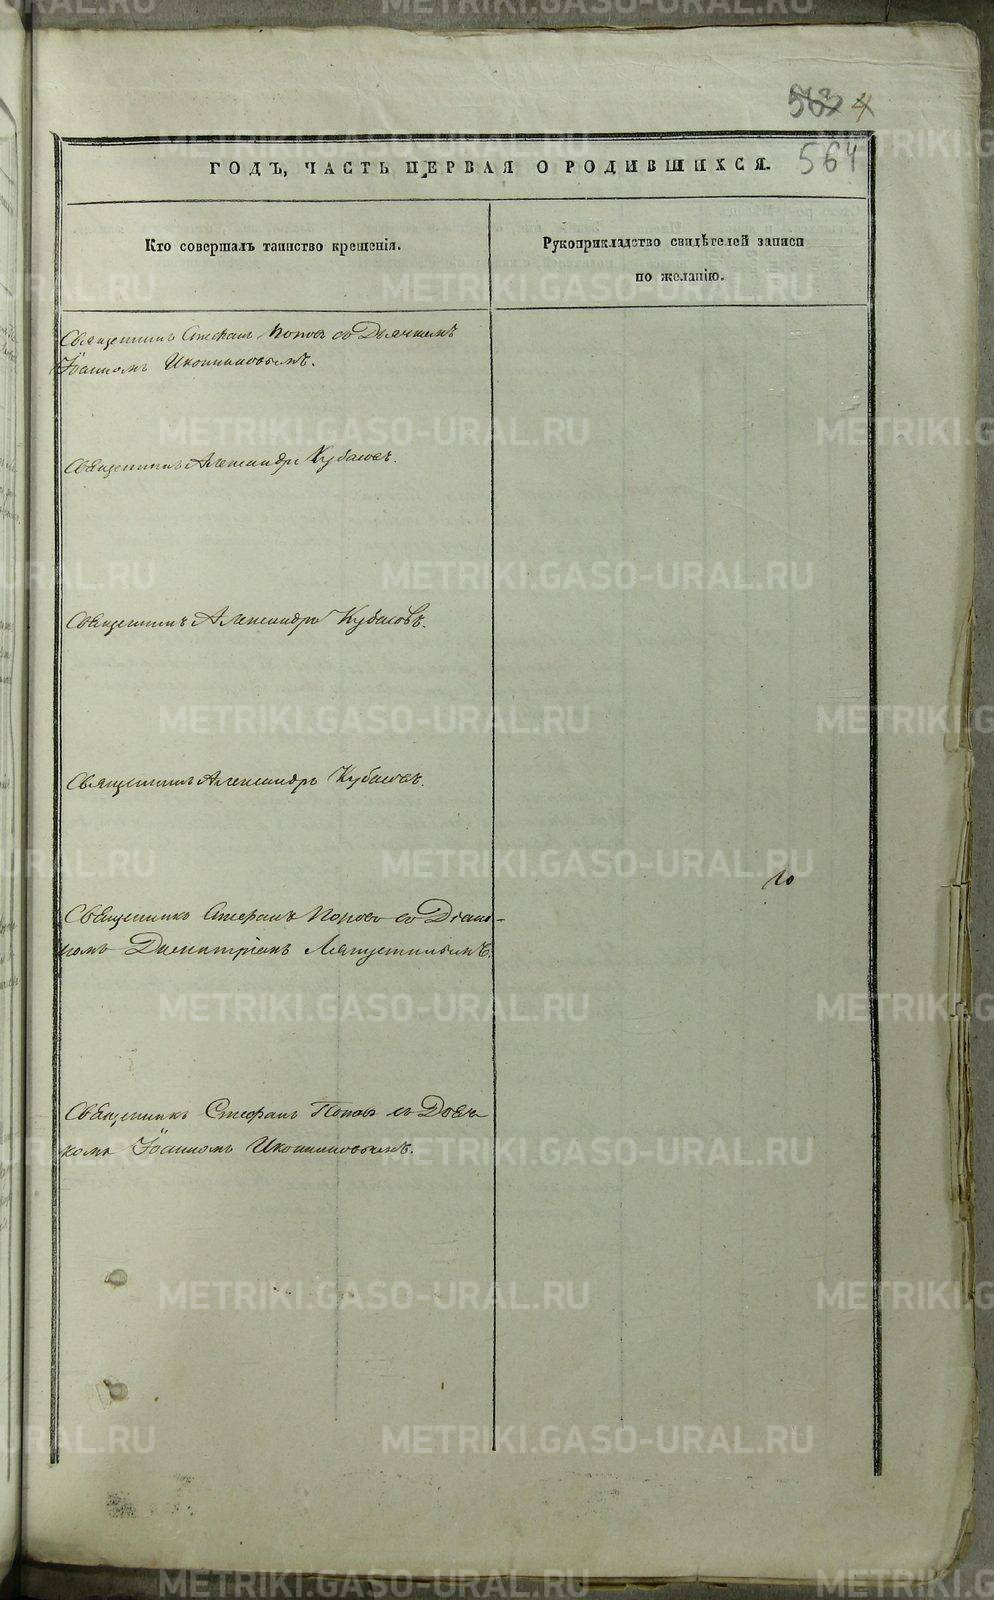 563 4
564
ГОДЪ, ЧАСТЬ ПЕРВАЯ О РОДИВШИХСЯ.
Кто совершалъ таинство крещенія.
Рукоприкладство свидѣтелей записи
по желанію.
Священникъ Стефанъ Поповъ со Дьячкомъ
Іоанномъ Иконниковымъ.
Священникъ Александръ Кубасовъ.
Священникъ Александръ Кубасовъ.
Священникъ Александръ Кубасовъ.
Священникъ Стефанъ Поповъ со Діако-
номъ Димитріемъ Ляпустинымъ.
Священникъ Стефанъ Поповъ съ Дьяч
комъ Іоанномъ Иконниковымъ.
METRIKI.GASO-URAL.RU